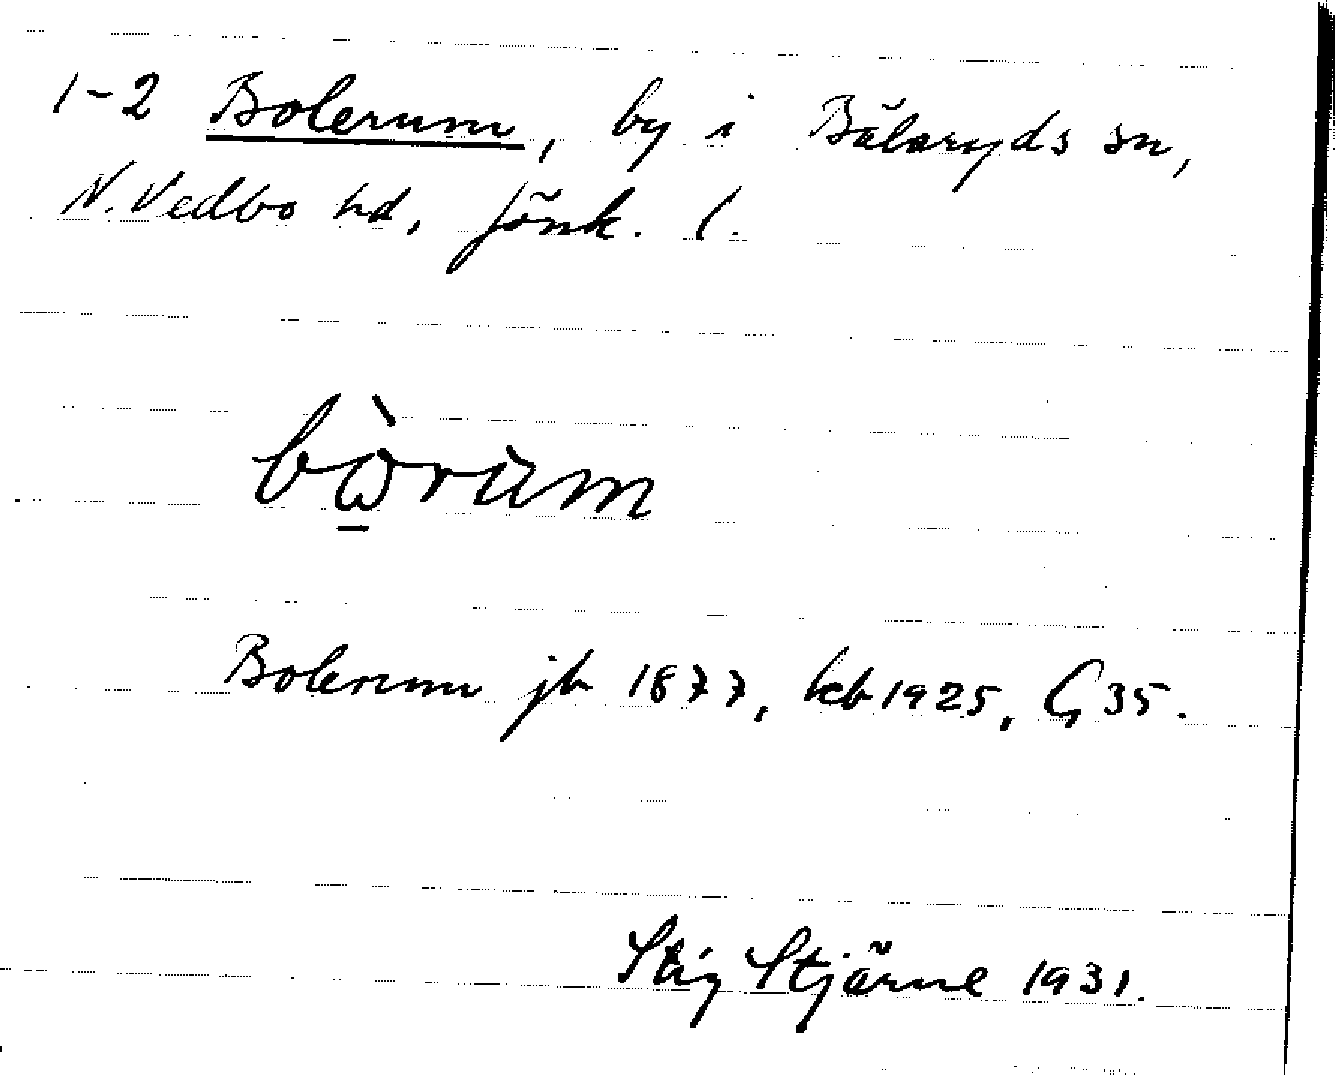 1-2 Bolerum, by i Bälaryds sn,
N. Vedbo hd, Jönk. l.
bὼ̱rùm
Bolerum jb 1877, kb 1925, G 35.
Stig Stjärne 1931.